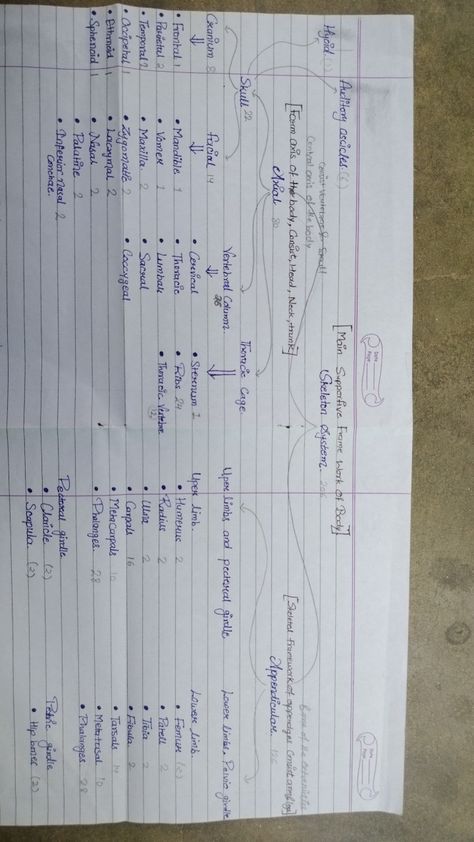 Date
Page
Date
Page
[Main Supportive Frame Work of Body]
Skeleton System. 206
Axial 80
[Form axis of the body, Consist, Head, Neck, trunk]
Central axis of the body.
Appendicular. 126
Auditory ossicles (6)
Hyoid (1)
Skull 22
Vertebral Column. 26
Thoracic Cage.
Cranium 8
• Frontal 1
• Parietal 2
• Temporal 2
• Occipital 1
• Ethmoid 1
• Sphenoid 1
Facial 14
• Mandible 1
• Vomer 1
• Maxilla 2
• Zygomatic 2
• Lacrymal 2
• Nasal 2
• Palatine 2
• Inferior Nasal 2
Conchae.
• Cervical
• Thoracic
• Lumbar
• Sacral
• Coccygeal
• Sternum 1
• Ribs 24
• Thoracic Vertebrae
Upper limbs and pectoral girdle
Upper limb.
• Humerus 2
• Radius 2
• Ulna 2
• Carpals 16
• Metacarpals 10
• Phalanges 28
Pectoral girdle
• Clavicle (2)
• Scapula (2)
Lower limbs, Pelvic girdle
Lower limb.
• Femur (2)
• Patell 2
• Tibia 2
• Fibula 2
• Tarsals 14
• Metatarsal 10
• Phalanges 28
Pelvic girdle
• Hip bones (2)